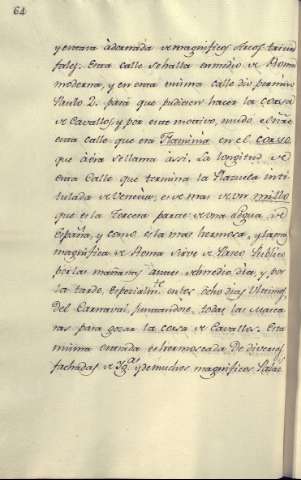 64
y estava adornada de magnificos Arcos triun
fales. Esta calle se halla en medio de Roma
moderna, y en esta misma calle dio permiso
Paulo 2. para que pudiesen hacer la corsa
de Cavallos, y por este motivo, mudó el nõe
esta calle que era Flaminia en el Corso
que aora se llama assi. La longitud de
esta Calle que termina la Plazuela inti
tulada de Venecia, es de mas de un millo
que es la tercera parte de una legua de
España, y como es la mas hermosa, y larga
magnifica de Roma sirve de Paseo Publico
por las mañanas antes de medio dia, y por
la tarde, especialmte. en los ocho dias Ultimos
del Carnaval, juntandose todas las masca
ras para gozar la corsa de Cavallos. Esta
misma entrada es hermoseada de diversas
fachadas de Igas. y de muchos magnificos Palac